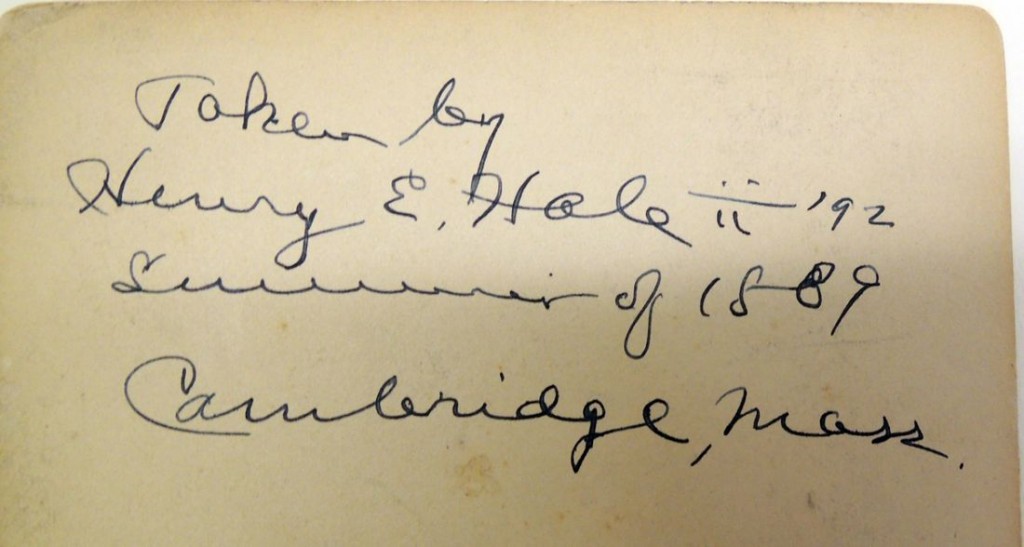 Taken by
Henry E. Hale ii '92
Summer of 1889
Cambridge, Mass.